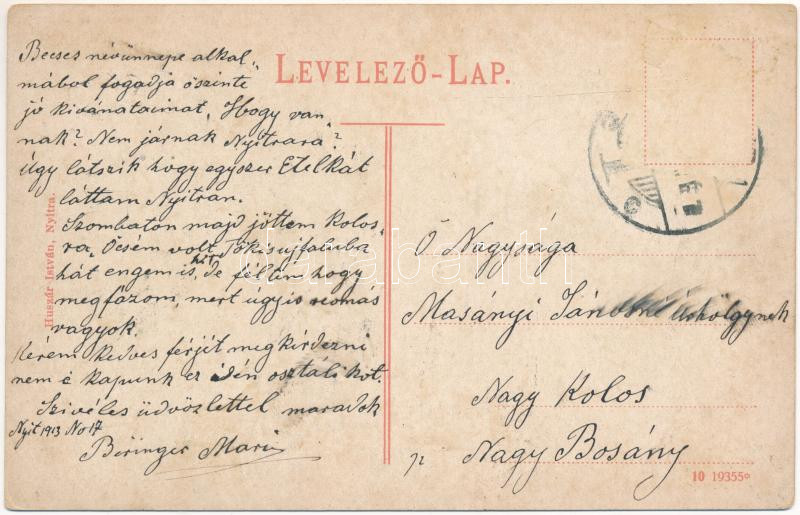 LEVELEZŐ-LAP.
Becses névünnepe alkal„
mából fogadja őszinte
jó kivánataimat, Hogy van„
nak? Nem járnak Nyitrara?
Úgy látszik hogy egyszer Etelkát
láttam Nyitran.
Szombaton majd jöttem Kolos„
ra, Öcsém volt Tőkisujfaluba
hát engem is hitt, De féltem hogy
megfázom, mert úgyis reomás
vagyok.
Kérem kedves férjét megkérdezni
nem é kapunk ez idén osztálékot.
Szivéles üdvözlettel maradok
Nyit 1913 No 17
Beringer Mari
Huszár István, Nyitra.
Ő Nagysága
Masányi Jánosné Úrhölgynek
Nagy Kolos
Nagy Bosány
10 19355
darabanth